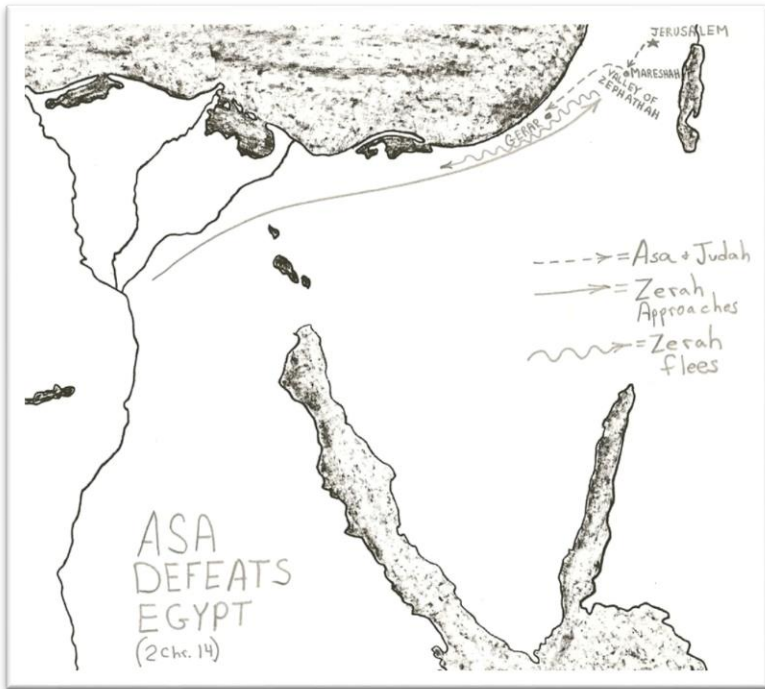 JERUSALEM
MARESHAH
VALLEY OF
ZEPHATHAH
GERAR
= Asa & Judah
= Zerah
Approaches
= Zerah
flees
ASA
DEFEATS
EGYPT
(2 Chr. 14)